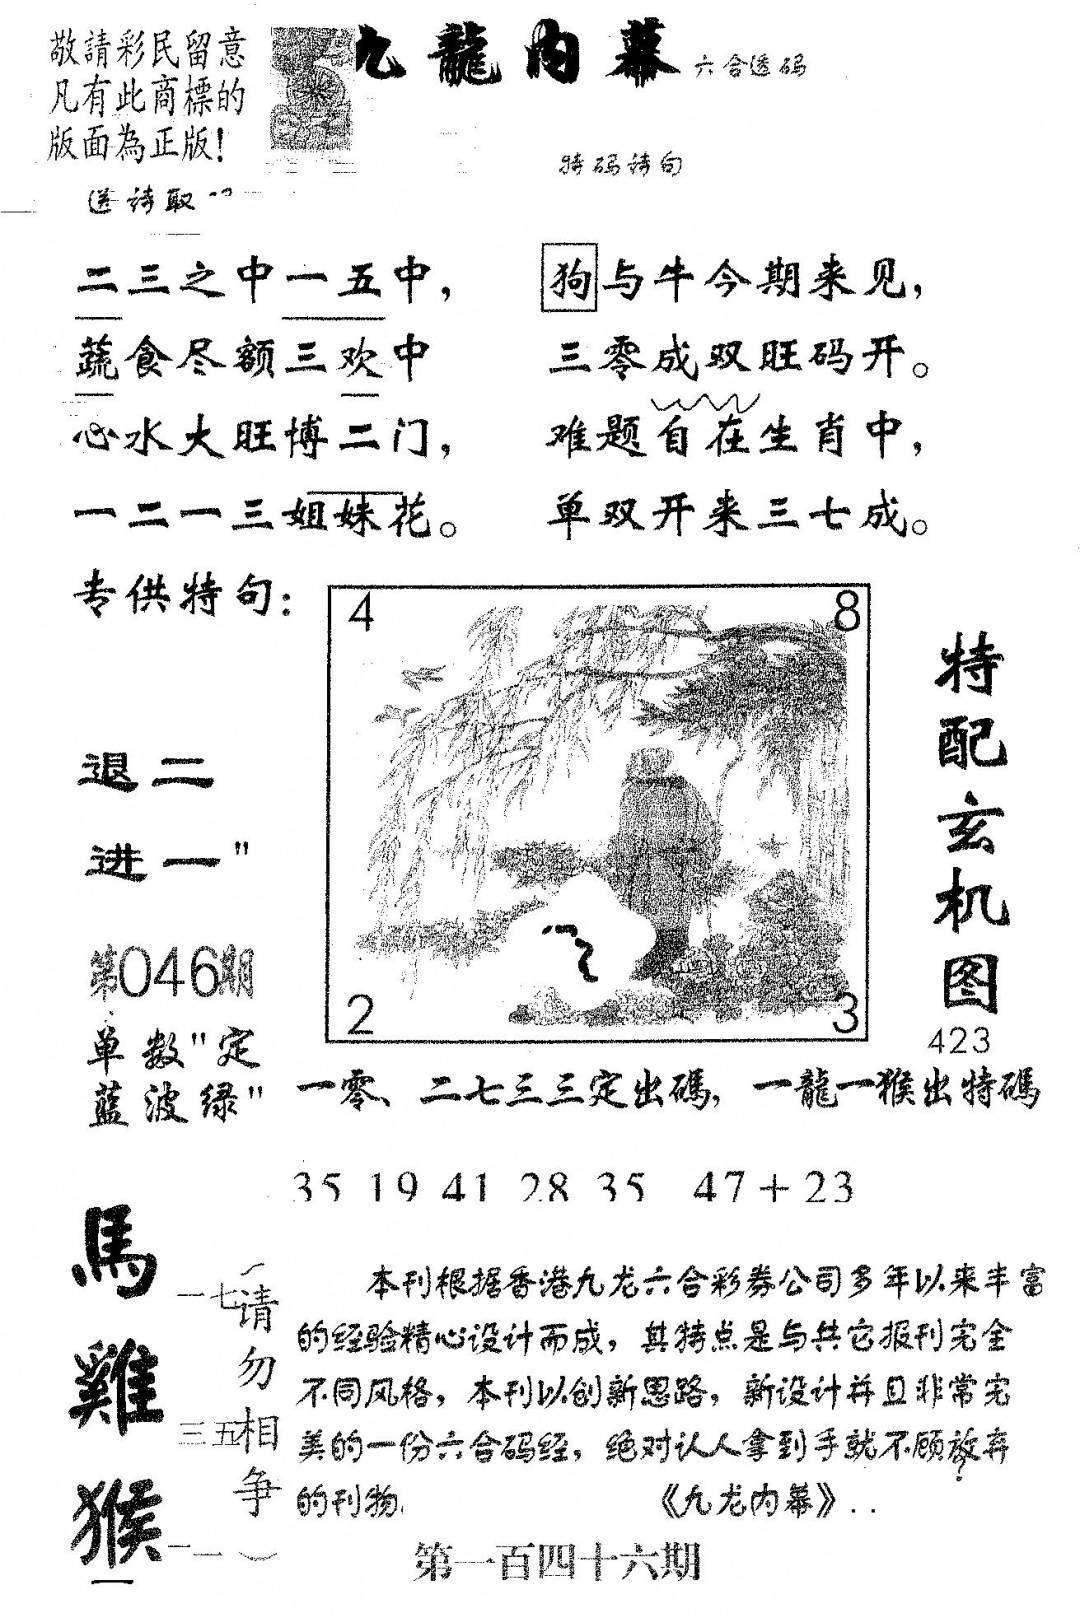 敬請彩民留意
凡有此商標的
版面為正版!
九龍内幕 六合透码
特码诗句
送诗取
二三之中一五中,
蔬食尽额三欢中
心水大旺博二门,
一二一三姐妹花。
狗与牛今期来见,
三零成双旺码开。
难题自在生肖中,
单双开来三七成。
专供特句:
退二
进一"
4
8
2
3
特配玄机图
423
第046期
单数"定
蓝波绿"
一零、二七三三定出碼, 一龍一猴出特碼
35 19 41 28 35 47+23
馬
一七
雞
三五
猴
一一
(请勿相争)
本刊根据香港九龙六合彩券公司多年以来丰富
的经验精心设计而成, 其特点是与其它报刊完全
不同风格, 本刊以创新思路, 新设计并且非常完
美的一份六合码经, 绝对认人拿到手就不顾放弃
的刊物.
《九龙内幕》..
第一百四十六期